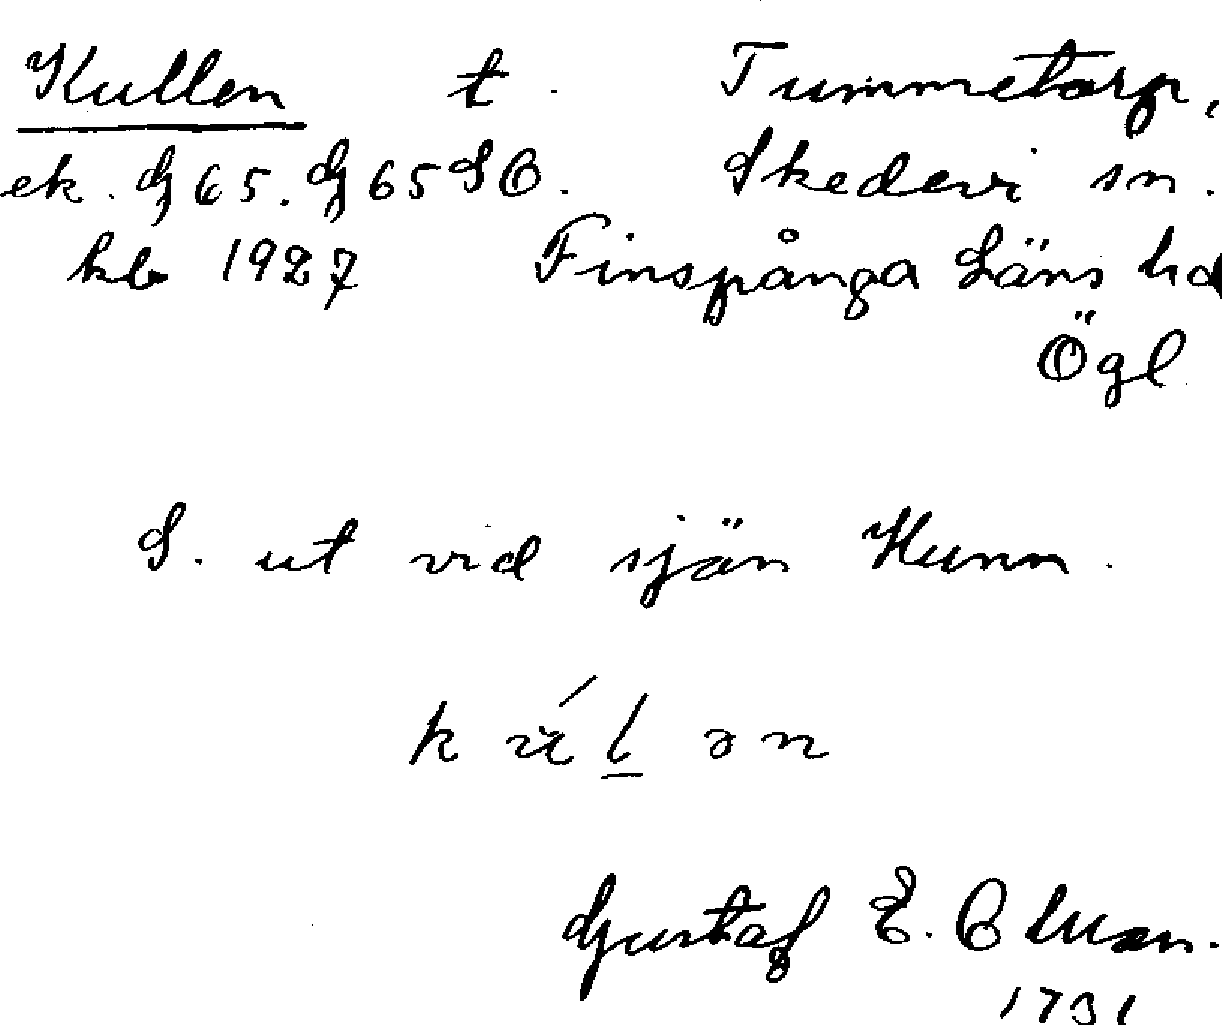 Kullen t. Tummetorp,
ek. G 65. G 65 SO. Skedevi sn.
kb 1927 Finspånga Läns hd
Ögl
S. ut vid sjön Hunn.
Gustaf E.